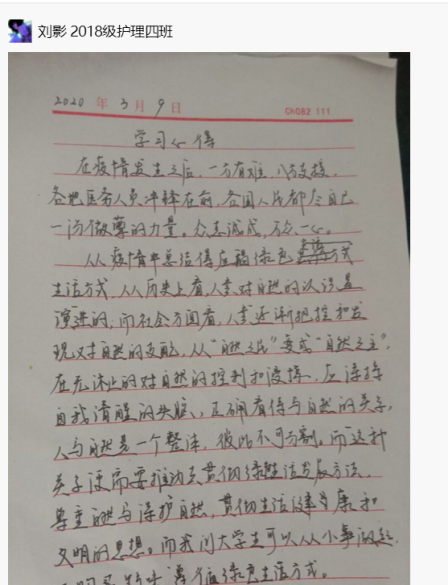 刘影 2018级护理四班
2020年3月9日
ChGB2 111
学习心得
在疫情发生之后,一方有难,八方支援,
各地医务人员冲锋在前,各国人民都尽自己
一份微薄的力量。众志成城,万众一心。
从疫情中总结得应倡绿色
生活方式,从历史上看,人类对自然的认识是
演进的,而社会方面看,人类逐渐把握和发
现对自然的支配,从“自然之民”变成“自然之主”,
在无休止的对自然的控制和侵扰,应保持
自我清醒的头脑,正确看待与自然的关系,
人与自然是一个整体,彼此不可分割。而这种
关系便需要推动去贯彻绿色发展方法,
尊重自然与保护自然,贯彻生活健康和
文明的思想。而我们大学生可以从小事做起
绿色生活方式。